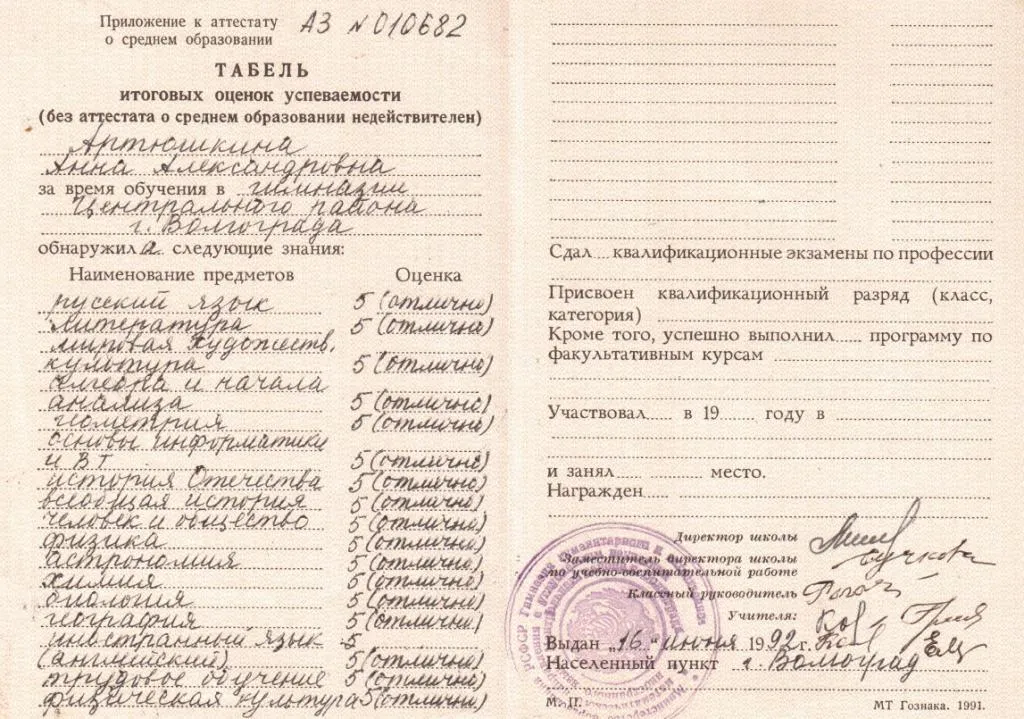 Приложение к аттестату
о среднем образовании
АЗ №010682
ТАБЕЛЬ
итоговых оценок успеваемости
(без аттестата о среднем образовании недействителен)
Артюшкина
Анна Александровна
за время обучения в гимназии
Центрального района
г. Волгограда
обнаружила следующие знания:
Наименование предметов Оценка
русский язык 5 (отлично)
литература 5 (отлично)
мировая художеств.
культура 5 (отлично)
алгебра и начала
анализа 5 (отлично)
геометрия 5 (отлично)
основы информатики
и ВТ 5 (отлично)
история Отечества 5 (отлично)
всеобщая история 5 (отлично)
человек и общество 5 (отлично)
физика 5 (отлично)
астрономия 5 (отлично)
химия 5 (отлично)
биология 5 (отлично)
география 5 (отлично)
иностранный язык 5
(английский) (отлично)
трудовое обучение 5 (отлично)
физическая культура 5 (отлично)
Сдал квалификационные экзамены по профессии
Присвоен квалификационный разряд (класс,
категория)
Кроме того, успешно выполнил программу по
факультативным курсам
Участвовал в 19 году в
и занял место.
Награжден
Директор школы
Заместитель директора школы
по учебно-воспитательной работе
Классный руководитель
Учителя:
Выдан „16“ июня 1992 г.
Населенный пункт г. Волгоград
М. П.
МТ Гознака. 1991.